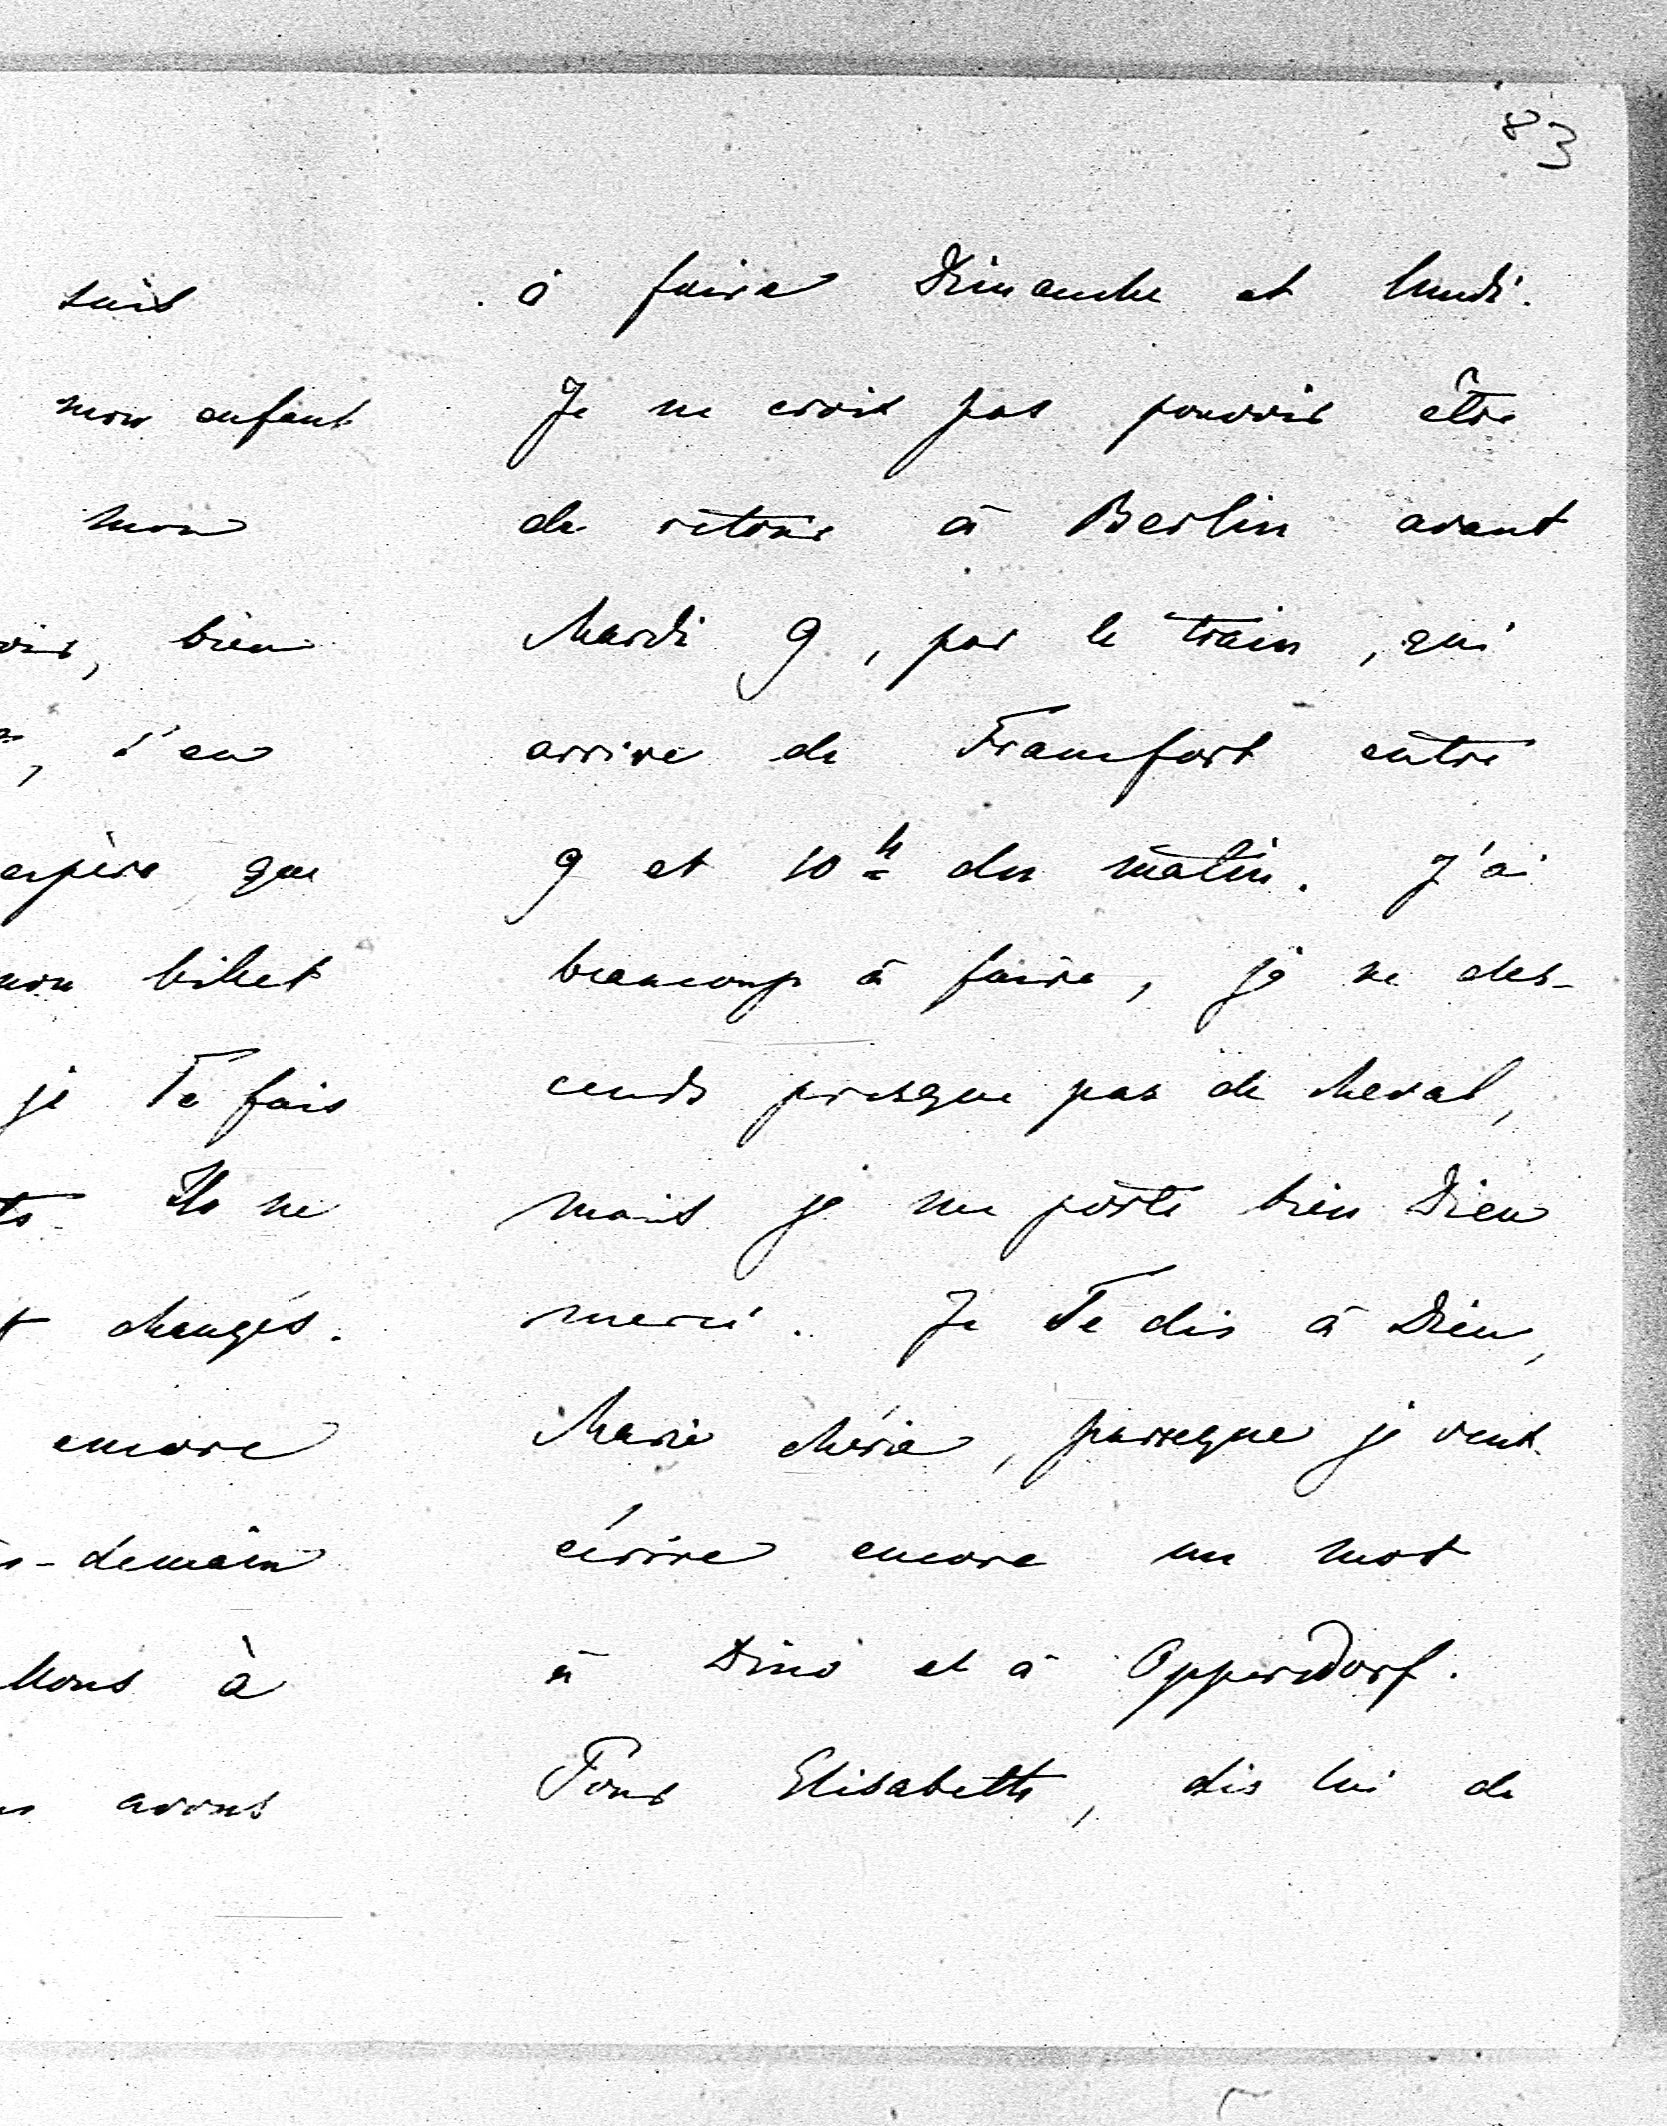 83
suis
mon enfant
mon
bien
s'en
espère que
mon billet
je Te fais
Ils ne
changés.
encore
demain
à
avons
à faire Dimanche et lundi.
Je ne crois pas pouvoir être
de retour à Berlin avant
Mardi 9, par le train, qui
arrive de Francfort entre
9 et 10 h du matin. J'ai
beaucoup à faire, je ne des-
cends presque pas de cheval,
mais je me porte bien Dieu
merci. Je Te dis à Dieu,
Marie chérie, parceque je veux
écrire encore un mot
à Dino et à Oppersdorf.
Pour Elisabeth, dis lui de